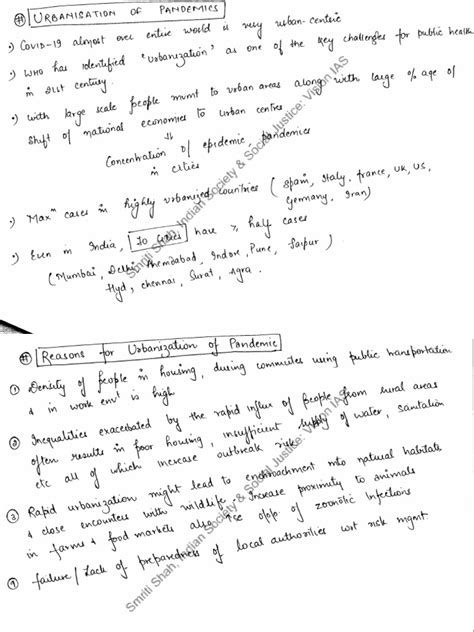 # URBANISATION OF PANDEMICS
•) COVID-19 almost over entire world is very urban-centric
•) WHO has identified "urbanization" as one of the key challenges for public health
in 21st century
•) With large scale people mvmt to urban areas along with large %age of
shift of national economies to urban centres
⇓
Concentration of epidemic, pandemics
in cities
•) Maxm cases in highly urbanized countries (Spain, Italy, France, UK, US,
Germany, Iran)
•) Even in India, 10 cities have ≥ half cases
(Mumbai, Delhi, Ahemdabad, Indore, Pune, Jaipur)
Hyd, chennai, Surat, Agra.
# Reasons for Urbanization of Pandemic
① Density of people in housing, during commutes using public transportation
& in work envt is high
② Inequalities exacerbated by the rapid influx of people from rural areas
often results in poor housing, insufficient supply of water, sanitation
etc all of which increase outbreak risk
③ Rapid urbanization might lead to encroachment into natural habitats
& close encounters with wildlife. Increase proximity to animals
in farms & food markets also opp. of zoonotic infections
④ failure / Lack of preparedness of local authorities wrt risk mgmt.
Smriti Shah, Indian Society & Social Justice: Vision IAS
Smriti Shah, Indian Society & Social Justice: Vision IAS